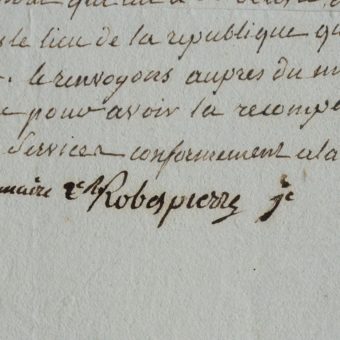 le lieu de la republique qu
le renvoyons aupres du m
pour avoir la recompe
Services conformement a la
maire Robespierre je